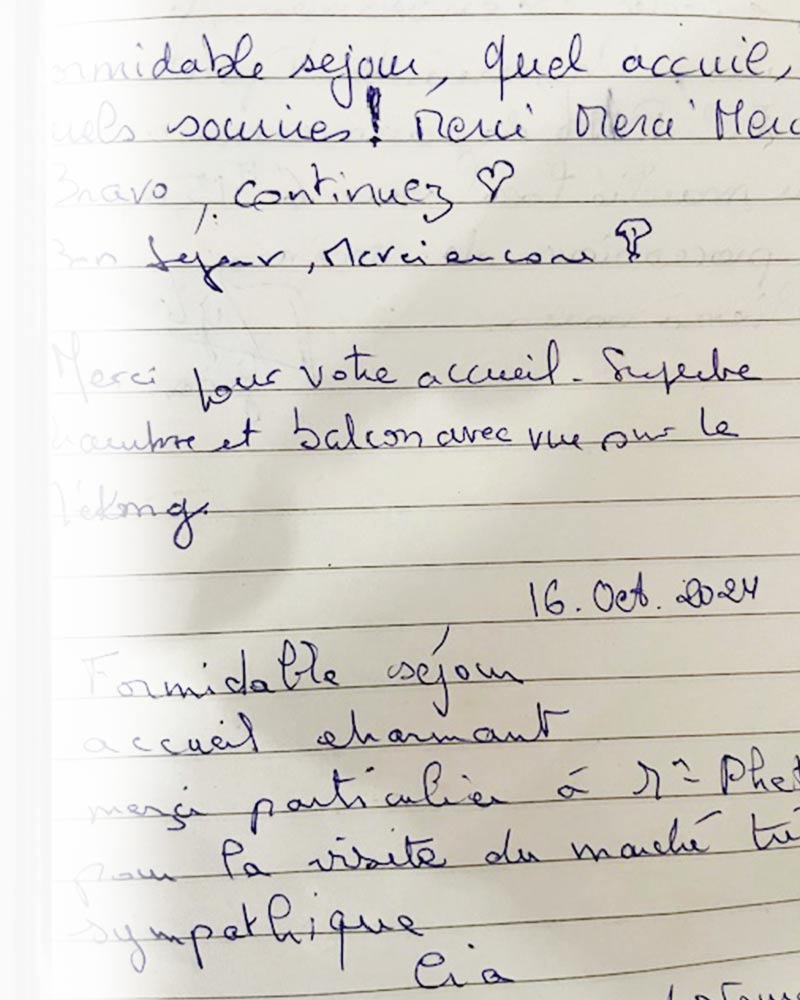 ormidable sejour, quel accueil,
uels sourires! Merci Merci Merc
Bravo, continuez ♡
Bon Sejour, Merci encore
Merci pour votre accueil. Superbe
chambre et balcon avec vue sur le
Mékong
16. Oct. 2024
Formidable séjour
accueil charmant
merçi particulier à Mr Phet
pour la visite du marché trè
sympathique